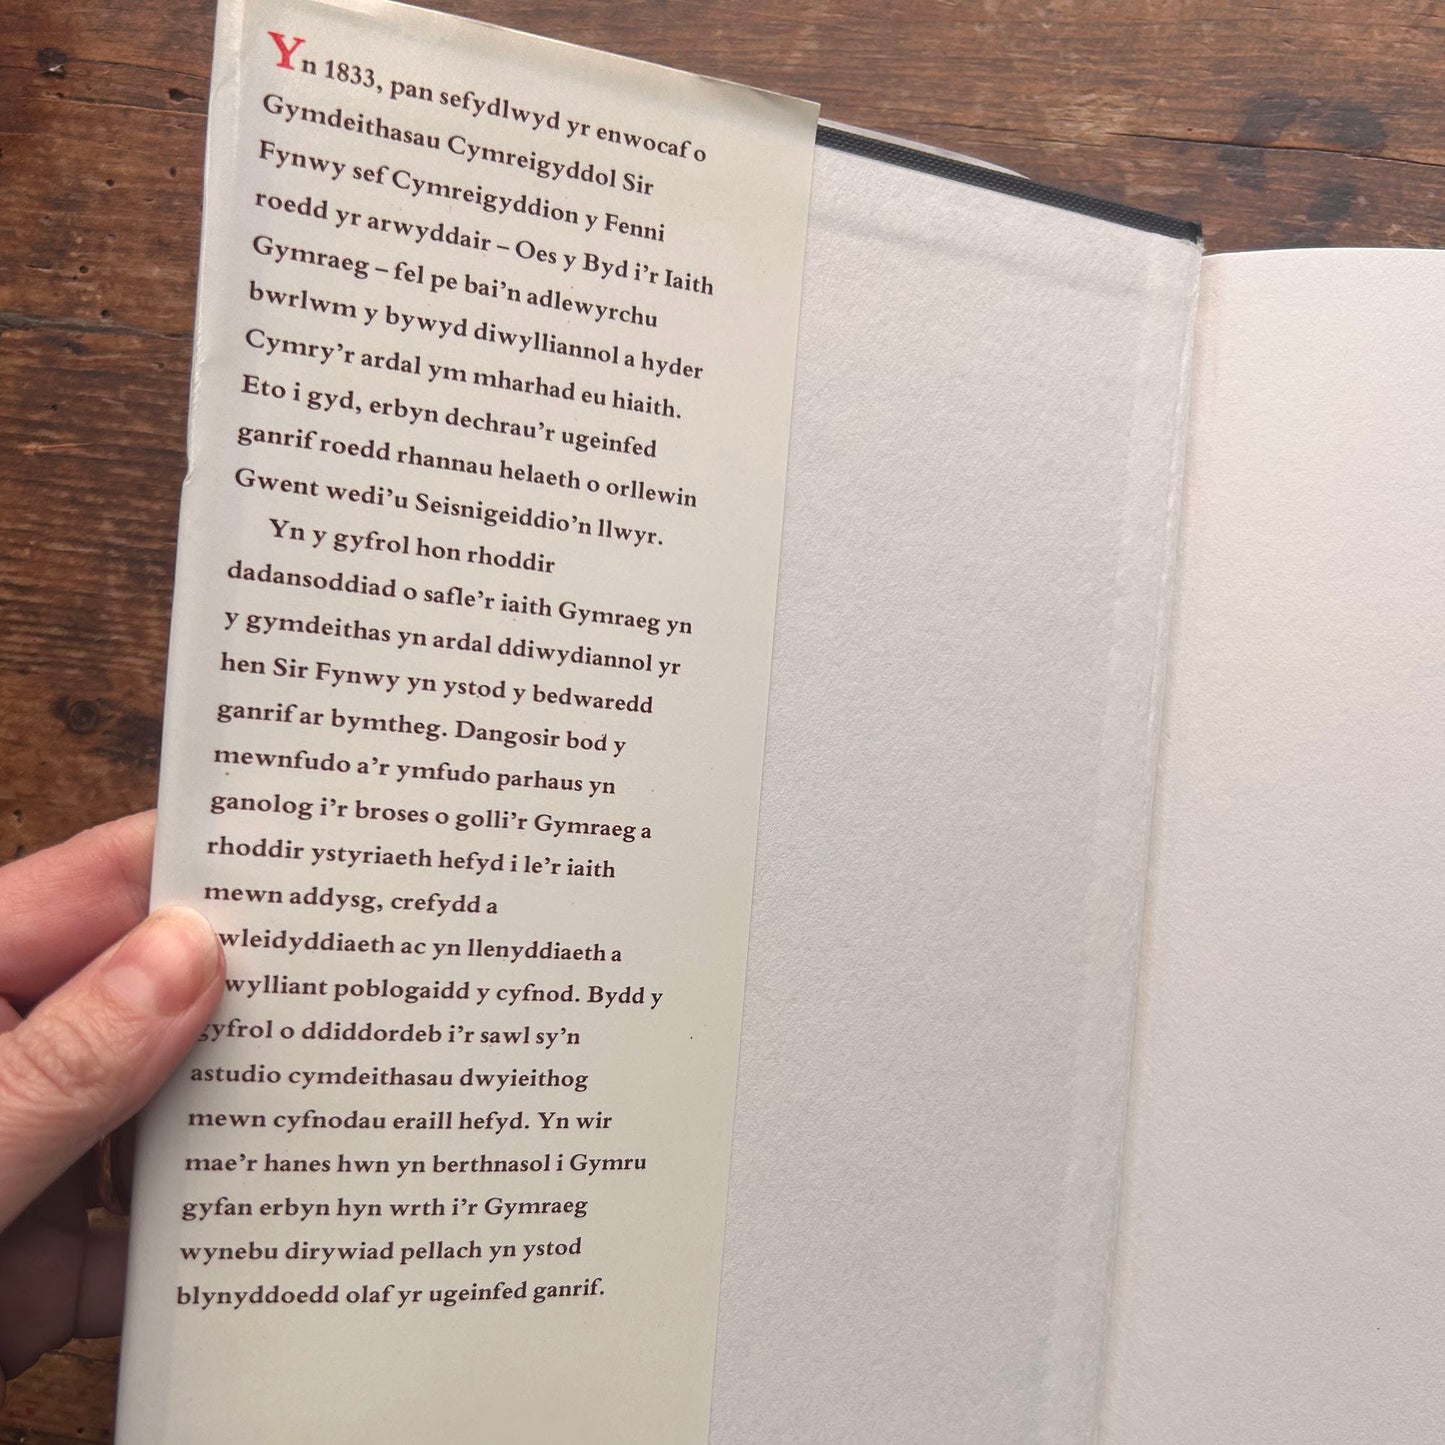 Yn 1833, pan sefydlwyd yr enwocaf o
Gymdeithasau Cymreigyddol Sir
Fynwy sef Cymreigyddion y Fenni
roedd yr arwyddair – Oes y Byd i’r Iaith
Gymraeg – fel pe bai’n adlewyrchu
bwrlwm y bywyd diwylliannol a hyder
Cymry’r ardal ym mharhad eu hiaith.
Eto i gyd, erbyn dechrau’r ugeinfed
ganrif roedd rhannau helaeth o orllewin
Gwent wedi’u Seisnigeiddio’n llwyr.
Yn y gyfrol hon rhoddir
dadansoddiad o safle’r iaith Gymraeg yn
y gymdeithas yn ardal ddiwydiannol yr
hen Sir Fynwy yn ystod y bedwaredd
ganrif ar bymtheg. Dangosir bod y
mewnfudo a’r ymfudo parhaus yn
ganolog i’r broses o golli’r Gymraeg a
rhoddir ystyriaeth hefyd i le’r iaith
mewn addysg, crefydd a
wleidyddiaeth ac yn llenyddiaeth a
wylliant poblogaidd y cyfnod. Bydd y
gyfrol o ddiddordeb i’r sawl sy’n
astudio cymdeithasau dwyieithog
mewn cyfnodau eraill hefyd. Yn wir
mae’r hanes hwn yn berthnasol i Gymru
gyfan erbyn hyn wrth i’r Gymraeg
wynebu dirywiad pellach yn ystod
blynyddoedd olaf yr ugeinfed ganrif.